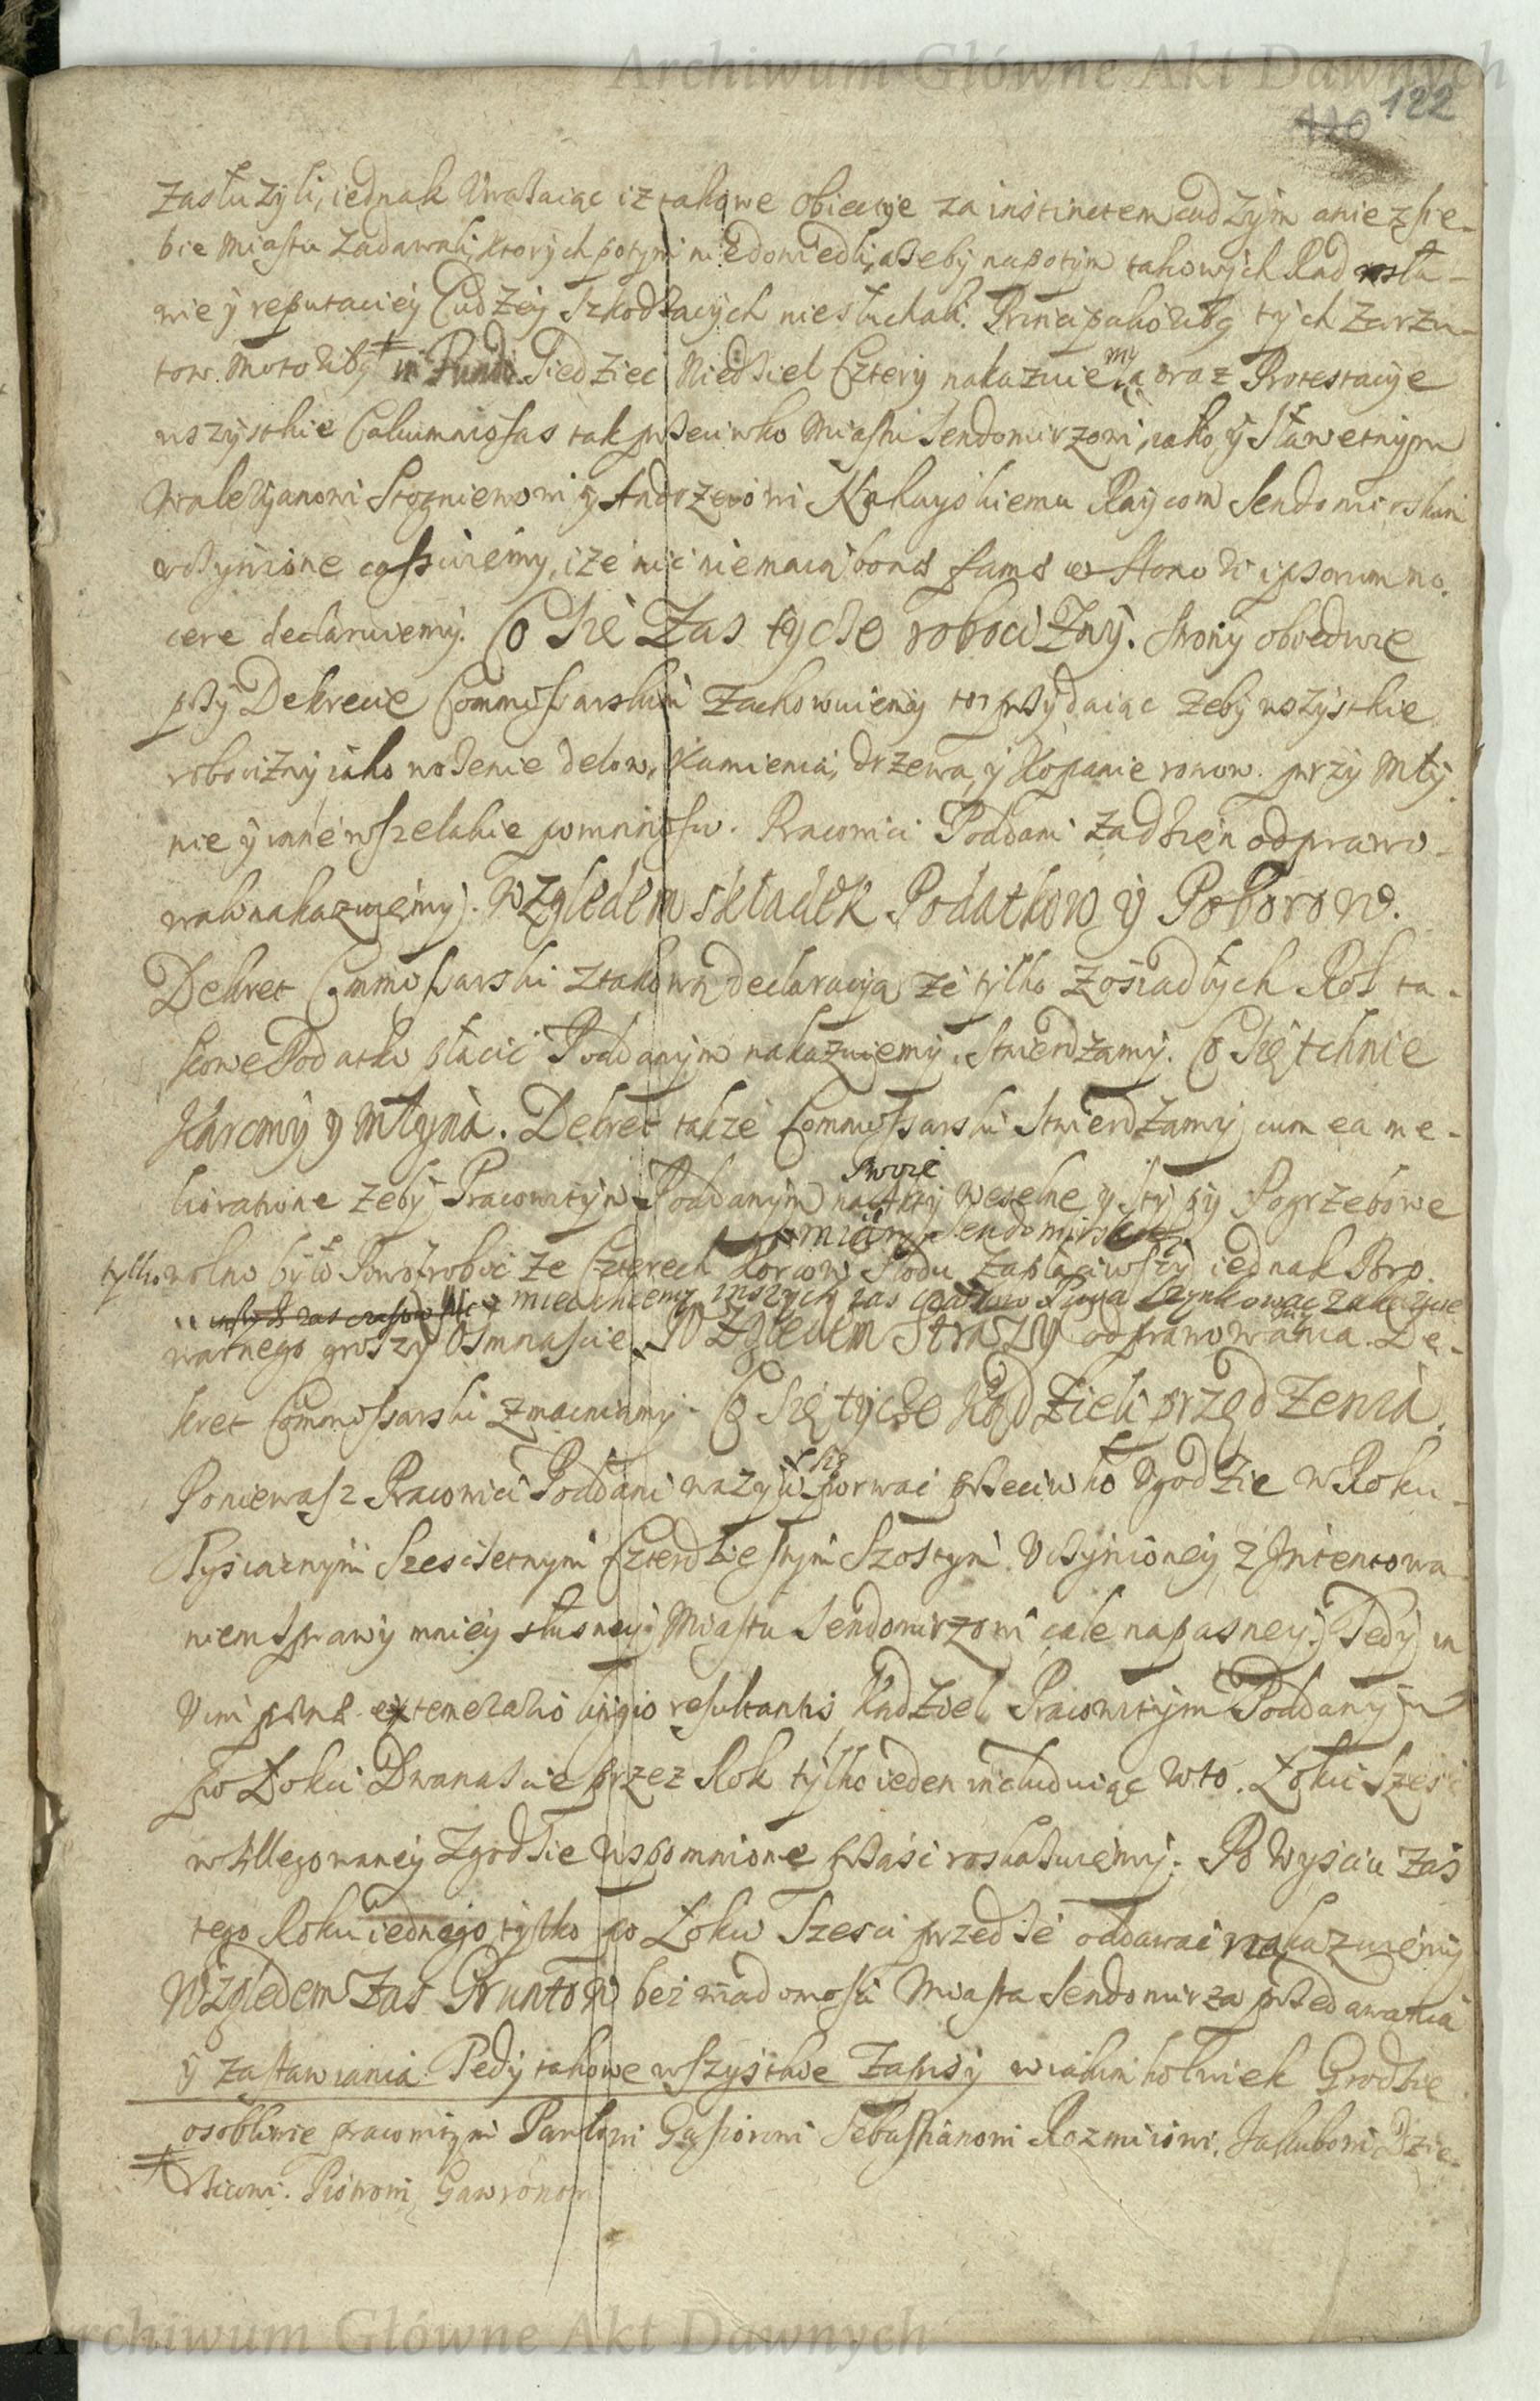 Archiwum Główne Akt Dawnych
110 122
zasłuzyli, iednak Uwazaiąc iz takowe obiectyje za instinctem cudzym a nie z sie-
bie Miastu zadawali, ktorych potym nie dowiedli, azeby napotym takowych Rad
nie y reputaciey Cudzey szkodzących niesłuchali. Principalioribus tych zarzu-
tow Motoribus in Fundo Siedziec Niedziel Cztery nakazuiemy, a oraz Protestacyje
wszystkie Calumniosas tak przeciwko Miastu Sendomirzowi, iako y Sławetnym
Waleryanowi Stogniewowi y Andrzeiowi Raycom Sendomirskim
uczynione cassuiemy, i ze nic niemaią bonæ famæ et Honori ipsorum no-
cere declaruiemy. Co Się Zas tycze robocizny. Strony obiedwie
przy Dekrecie Commissarskim zachowuiemy to przydaiąc zeby wszystkie
robocizny iako nozenie delow, Kamienia, drzewa, y Kopanie rowow przy Mły-
nie y inne wszelakie powinnosci Pracowici Poddani za dzien odprawo-
wali nakazuiemy. Względem składek Podatkow y Poborow.
Dekret Commissarski z takową declaracyją ze tylko z osiadłych Rol ta-
kowe Podatki płacic Poddanym nakazuiemy, Stwierdzamy. Co Się tchnie
Karcmy y Młyna. Dekret takze Commissarski Stwierdzamy cum ea me-
lioratione zeby Pracowitym Poddanym na Akty swoie Weselne y Stypy Pogrzebowe
miary Sendomirskiey
tylko wolno było Piwo robic ze Czterech Korcow Słodu zapłaciwszy iednak Bro-
miec chcemy inszych zas czasow Piwa szynkowac zakazuie
warnego groszy Osmnascie. Względem Strazy odprawowania. De-
kret Commissarski zmacniamy. Co Się tycze Kądzieli przędzenia.
Poniewasz Pracowici Poddani wazyli się porwac przeciwko Ugodzie w Roku
Tysiacnym Szescsetnym Czterdziestym Szostym Uczynioney, z Intentowa-
niem Sprawy mniey słuszney Miastu Sendomirzowi cale napasney. Tedy in
Vim pænæ ex temerario litigio resultantis Kądziel Pracowitym Poddanym
po Łokci Dwanascie przez Rok tylko ieden includuiąc w to Łokci Szesc
w Allegowaney Zgodzie wspomnione prząsc roskazuiemy. Po Wysciu zas
tego Roku iednego tylko po Łokci Szesci przędze oddawac nakazuiemy
Względem Zas Gruntow bez wiadomosci Miasta Sendomirza przedawania
y zastawiania Tedy takowe wszystkie Zapisy w iakimkolwiek Grodzie
osobliwie pracowitym Pawłowi Gąsiorowi Sebastianowi Rozmiiowi, Jakubowi
Piotrowi Gawronowi
Archiwum Główne Akt Dawnych